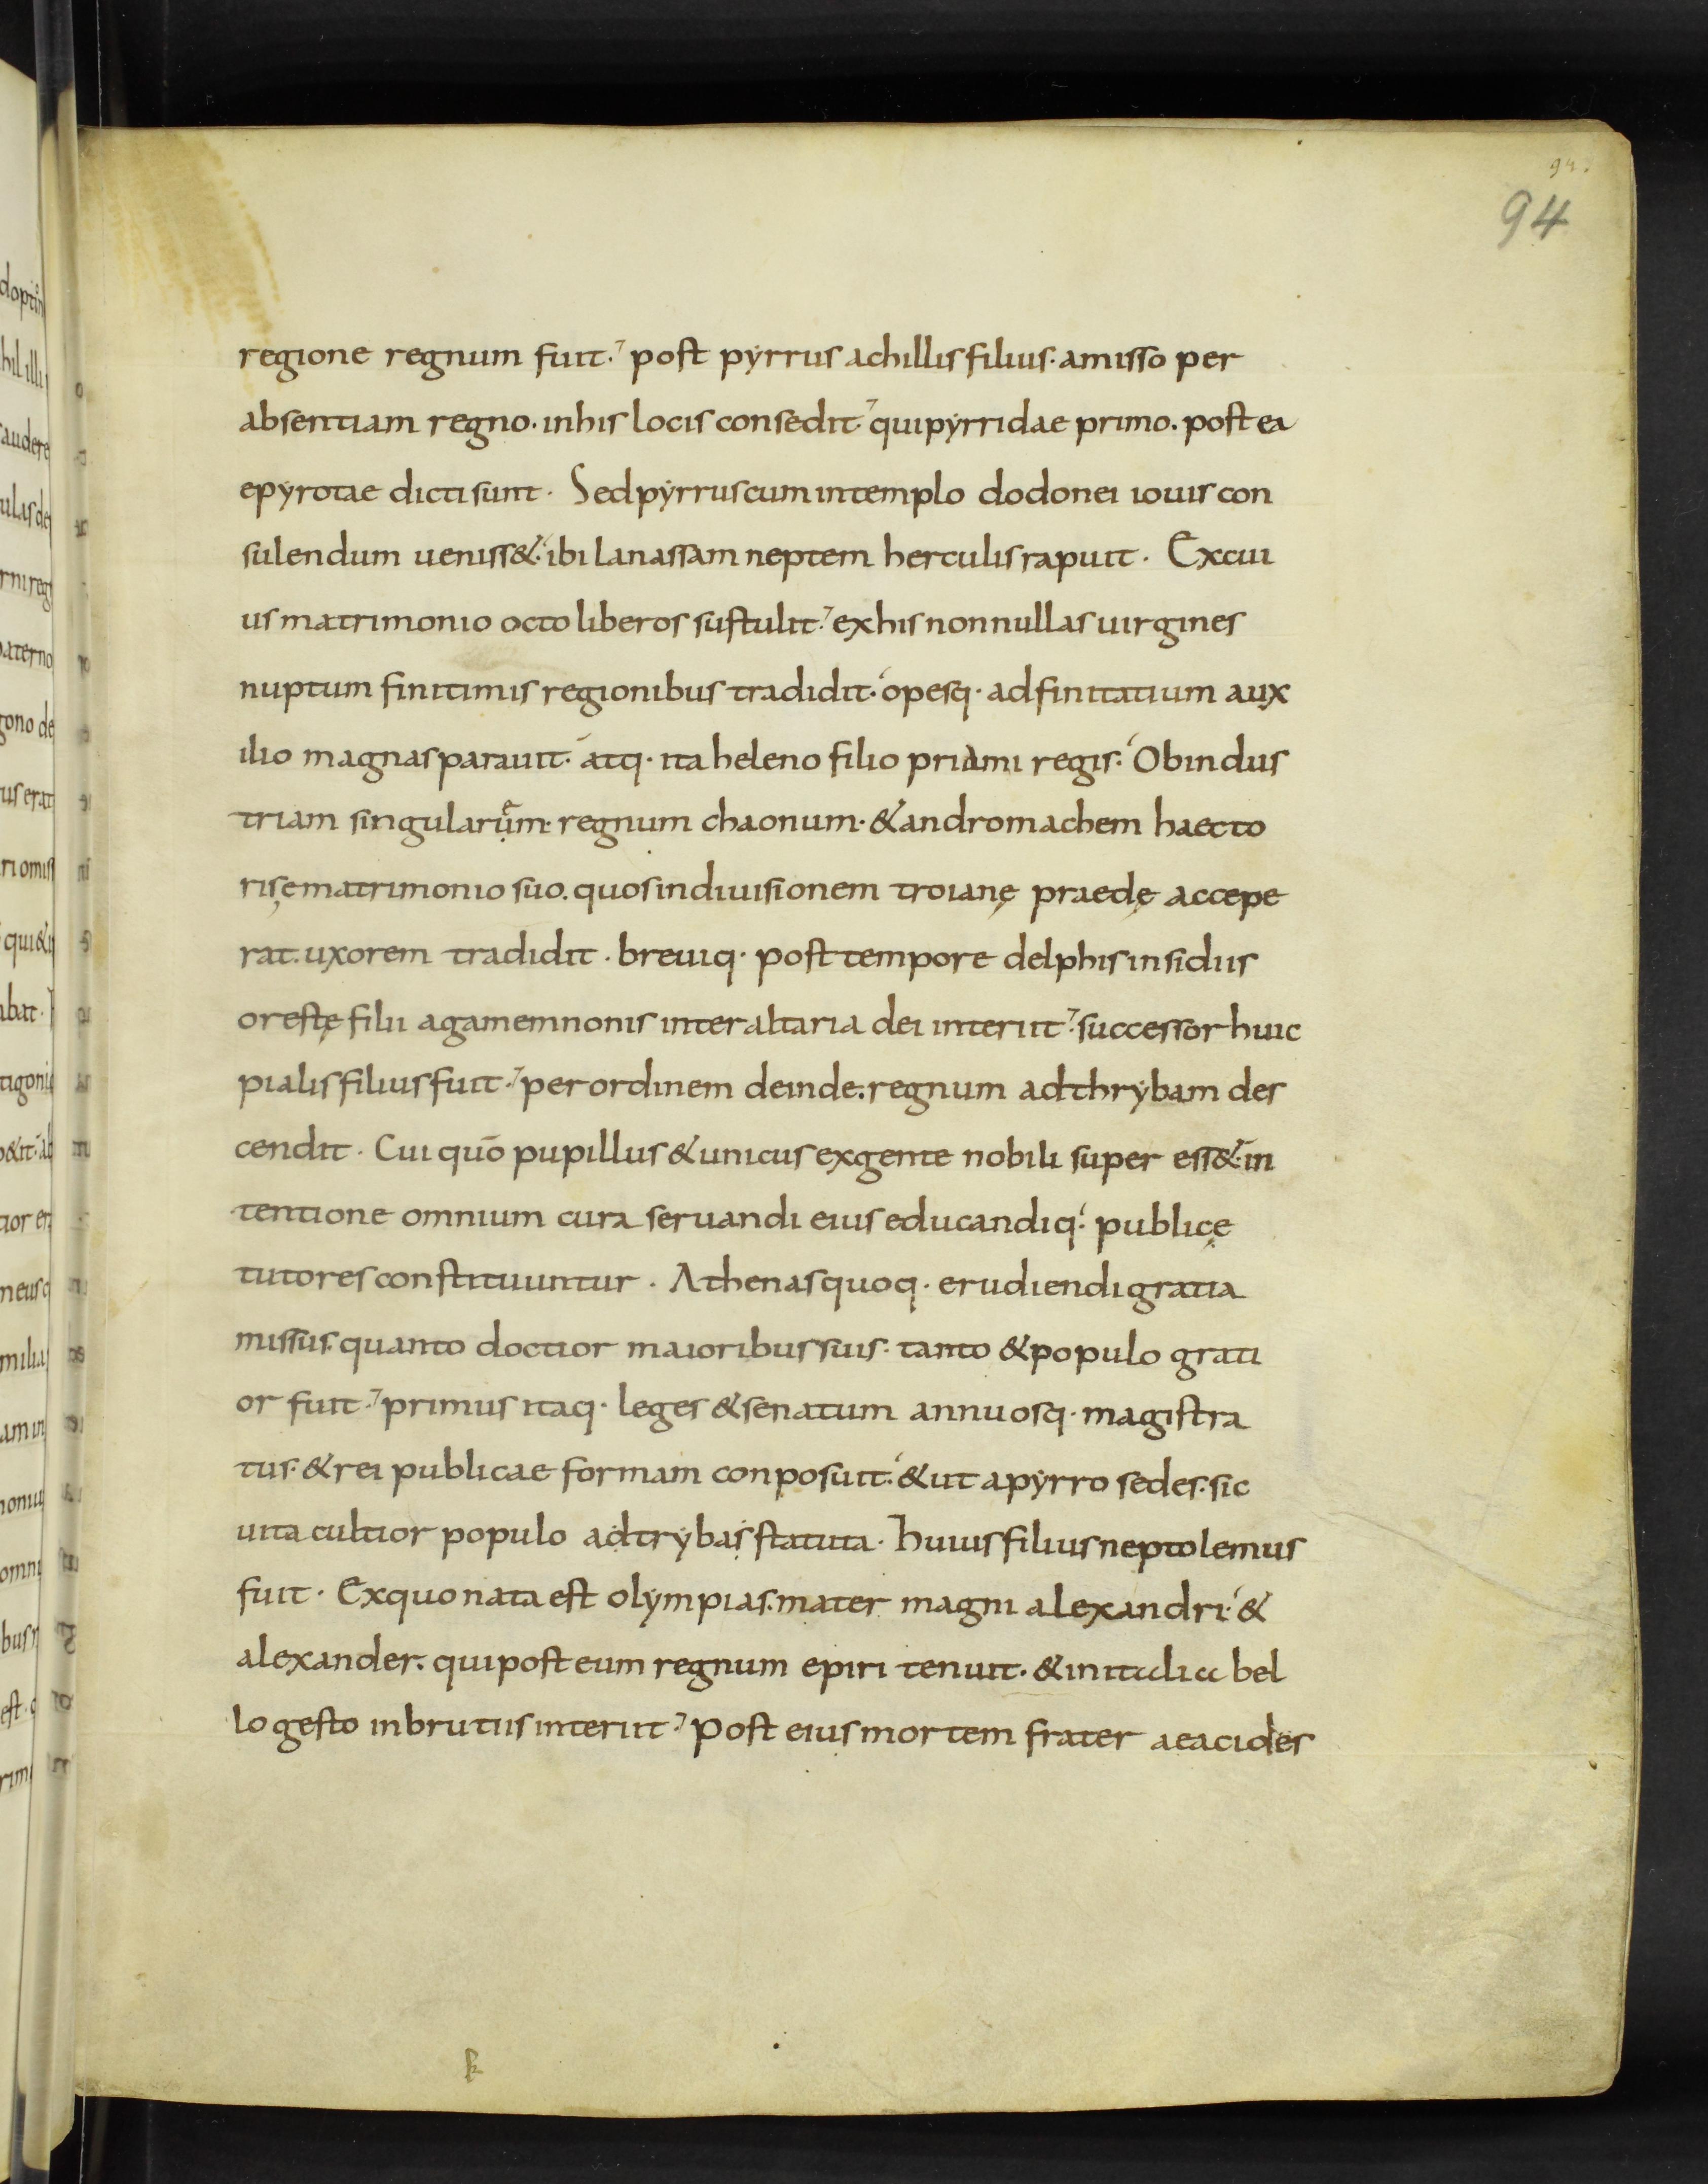 94.
94
regione regnum fuit. post pyrrus achillis filius. amisso per
absentiam regno. inhis locis consedit. quipyrridae primo. postea
epyrotae dicti sunt. Sedpyrruscumintemplo dodonei iouis con
sulendum ueniss&. ibi lanassam neptem herculisrapuit. Excui
us matrimonio octo liberos sustulit. exhis nonnullas uirgines
nuptum finitimis regionibus tradidit. opesq. adfinitatium aux
ilio magnas parauit. atq. ita heleno filio priami regis. Obindus
triam singularum. regnum chaonum. &andromachem haecto
risematrimonio suo. quosindiuisionem troianę praedę accepe
rat. uxorem tradidit. breuiq. post tempore delphis insidiis
orestę filii agamemnonis inter altaria dei interiit. successor huic
pialis filius fuit. per ordinem deinde. regnum adthrybam des
cendit. Cui quō pupillus &unicus exgente nobili super ess& in
tentione omnium cura seruandi eius educandiq. publicę
tutores constituuntur. Athenasquoq. erudiendi gratia
missus. quanto doctior maioribus suis. tanto &populo grati
or fuit. primus itaq. leges &senatum annuosq. magistra
tus. &rei publicae formam conposuit. &ut apyrro sedes. sic
uita cultior populo adtrybas statuta. huius filius neptolemus
fuit. Exquo nata est olympias. mater magni alexandri. &
alexander. quipost eum regnum epiri tenuit. &initalia bel
lo gesto inbrutiis interiit. Post eius mortem frater aeacides